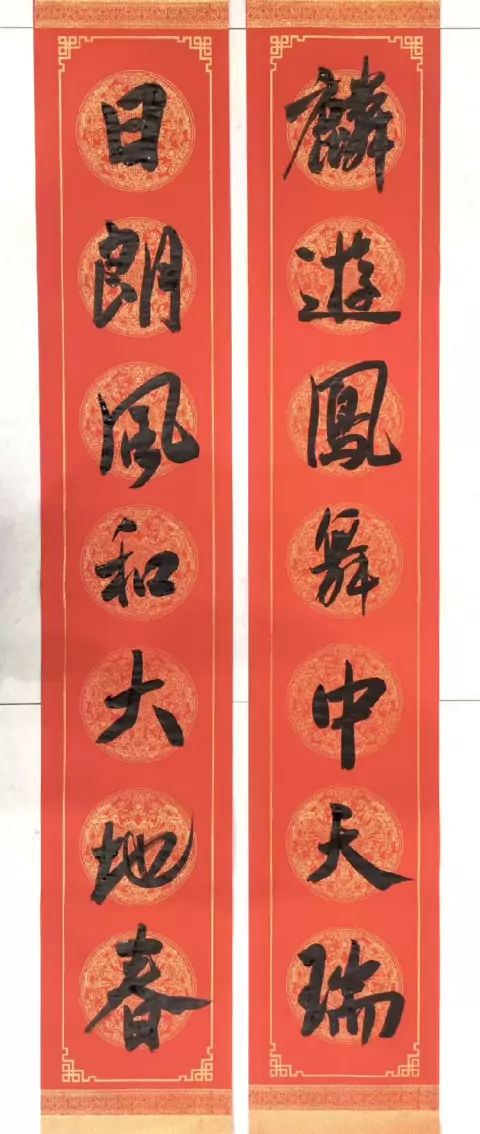 麟遊鳳舞中天瑞
日朗風和大地春